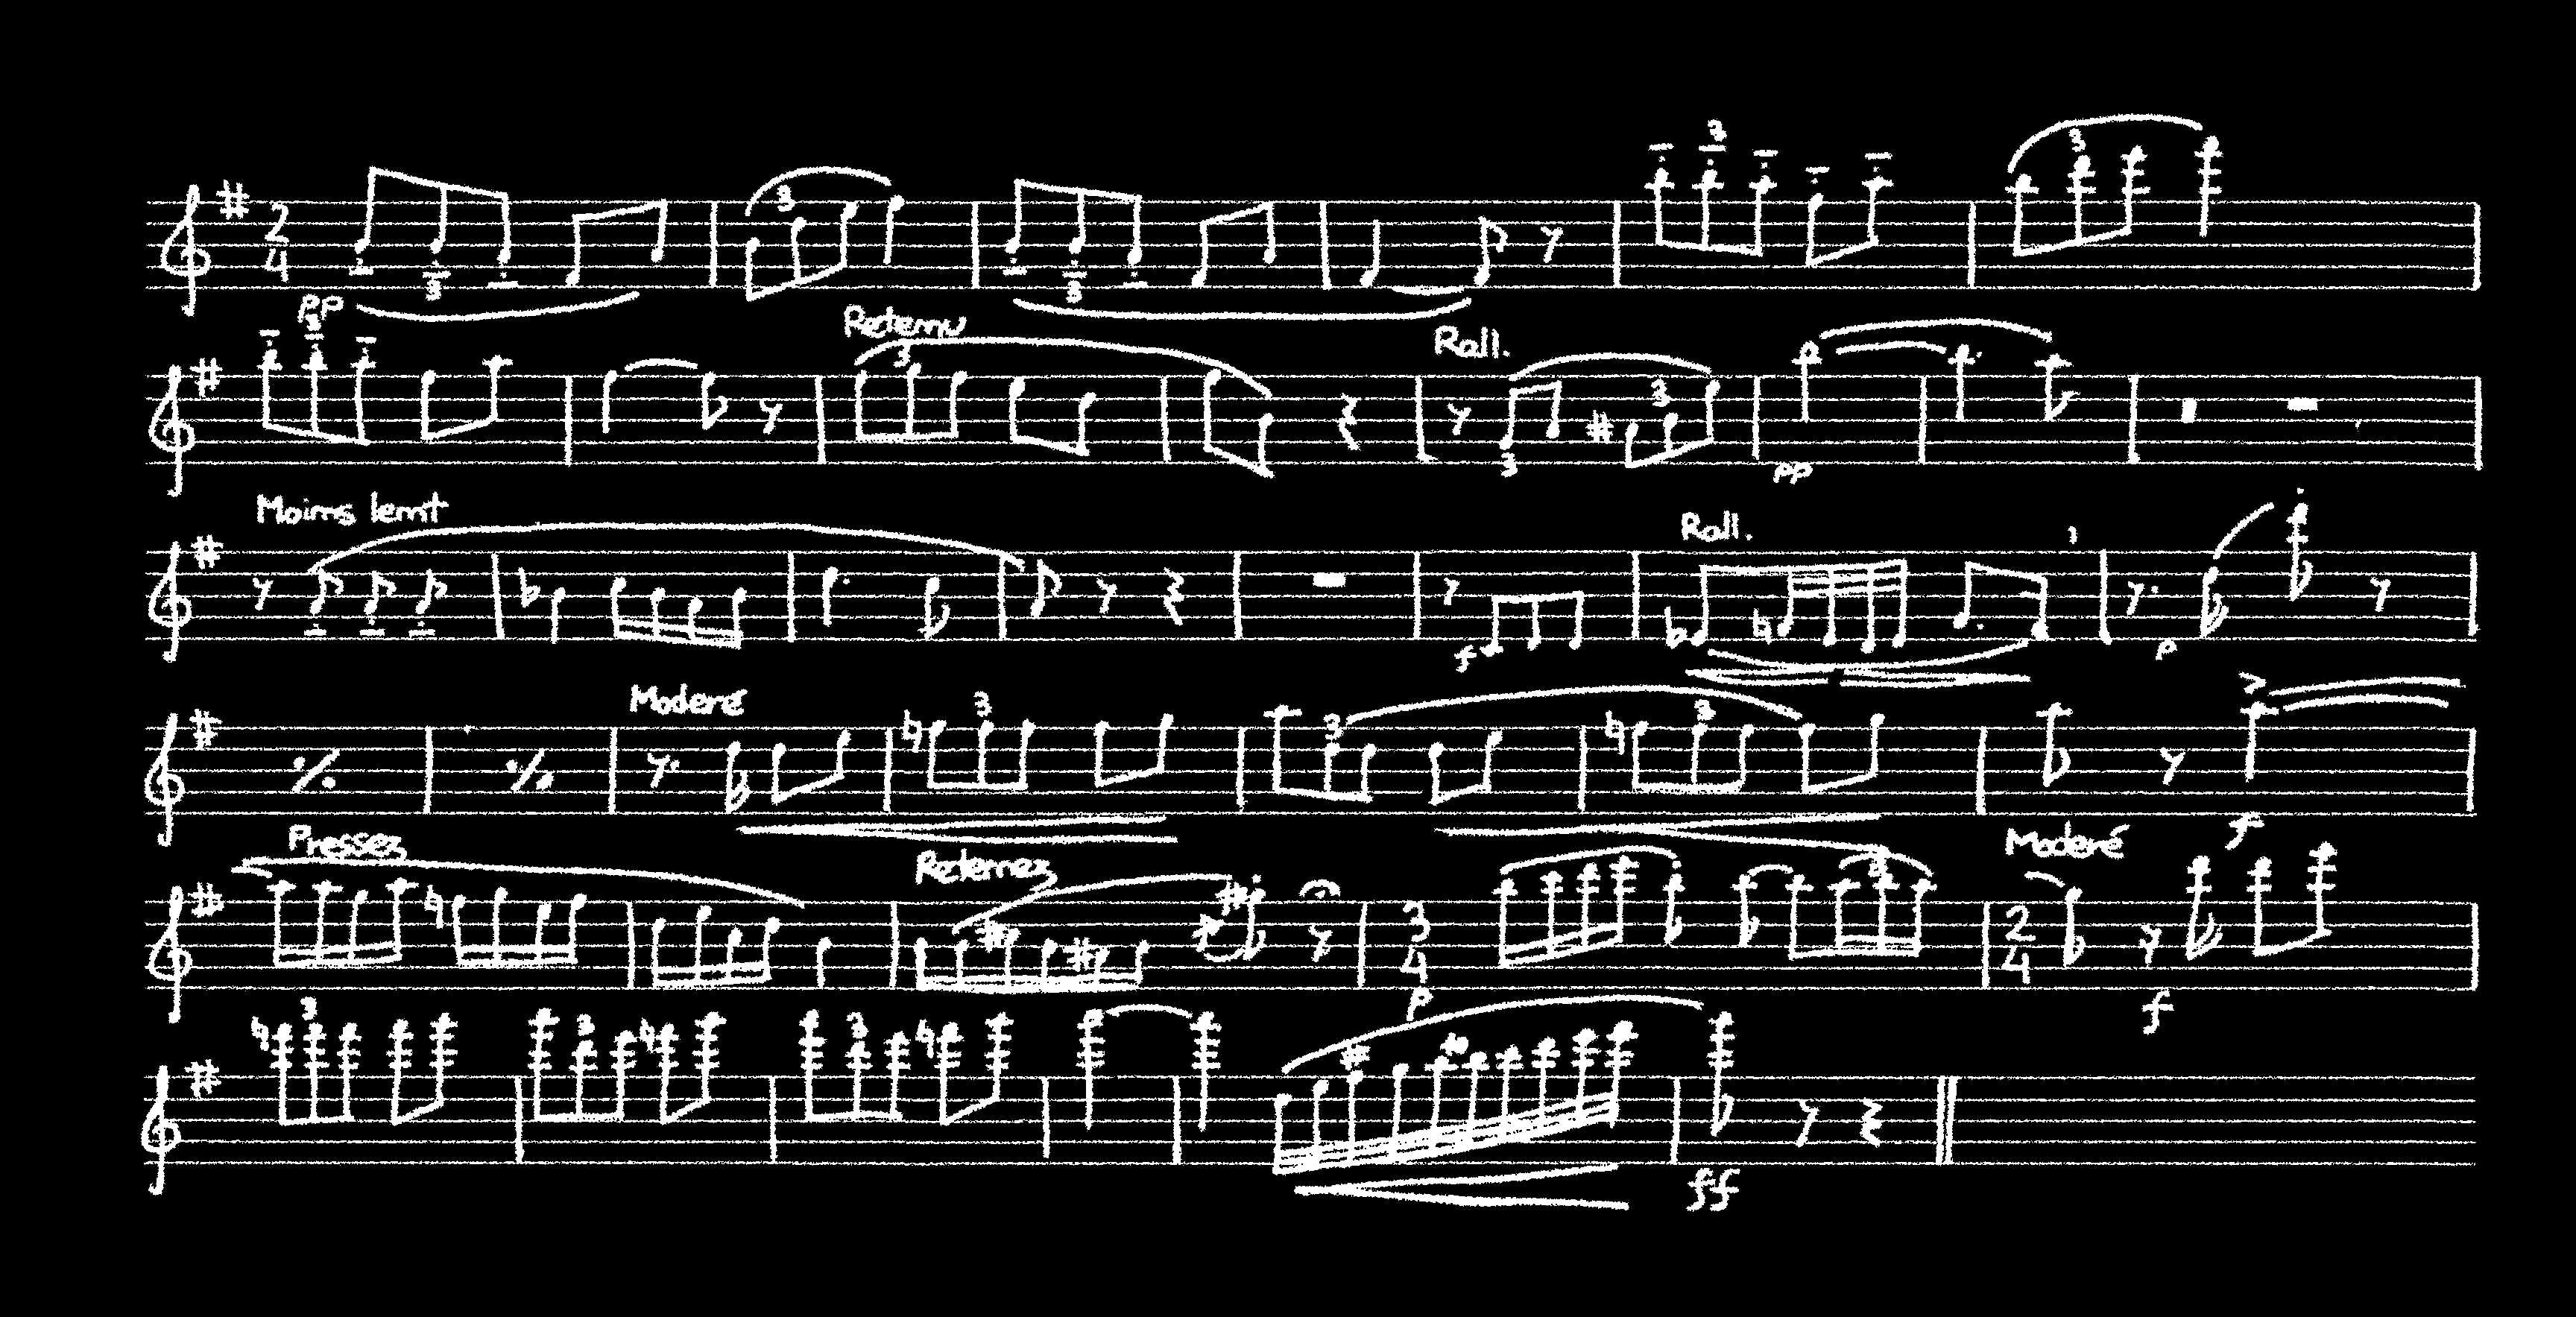 2
4
3
3
3
3
3
pp
3
Retenu
3
Rall.
3
3
pp
Moins lent
Rall.
f
p
Moderé
3
3
3
f
Pressez
Retenez
3
4
3
Moderé
2
4
p
f
3
3
3
ff